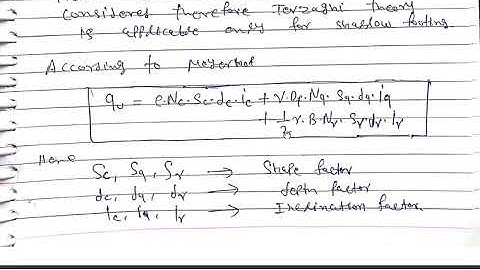 consideres therefore Terzaghi theory
is applicable only for shallow footing.
According to Meyerhof
qu = c.Nc.Sc.dc.ic + γ.Df.Nq.Sq.dq.iq
+ 1/2 γ.B.Nγ.Sγ.dγ.Iγ
Here
Sc, Sq, Sγ → Shape factor
dc, dq, dγ → depth factor
Ic, iq, Iγ → Inclination factor.